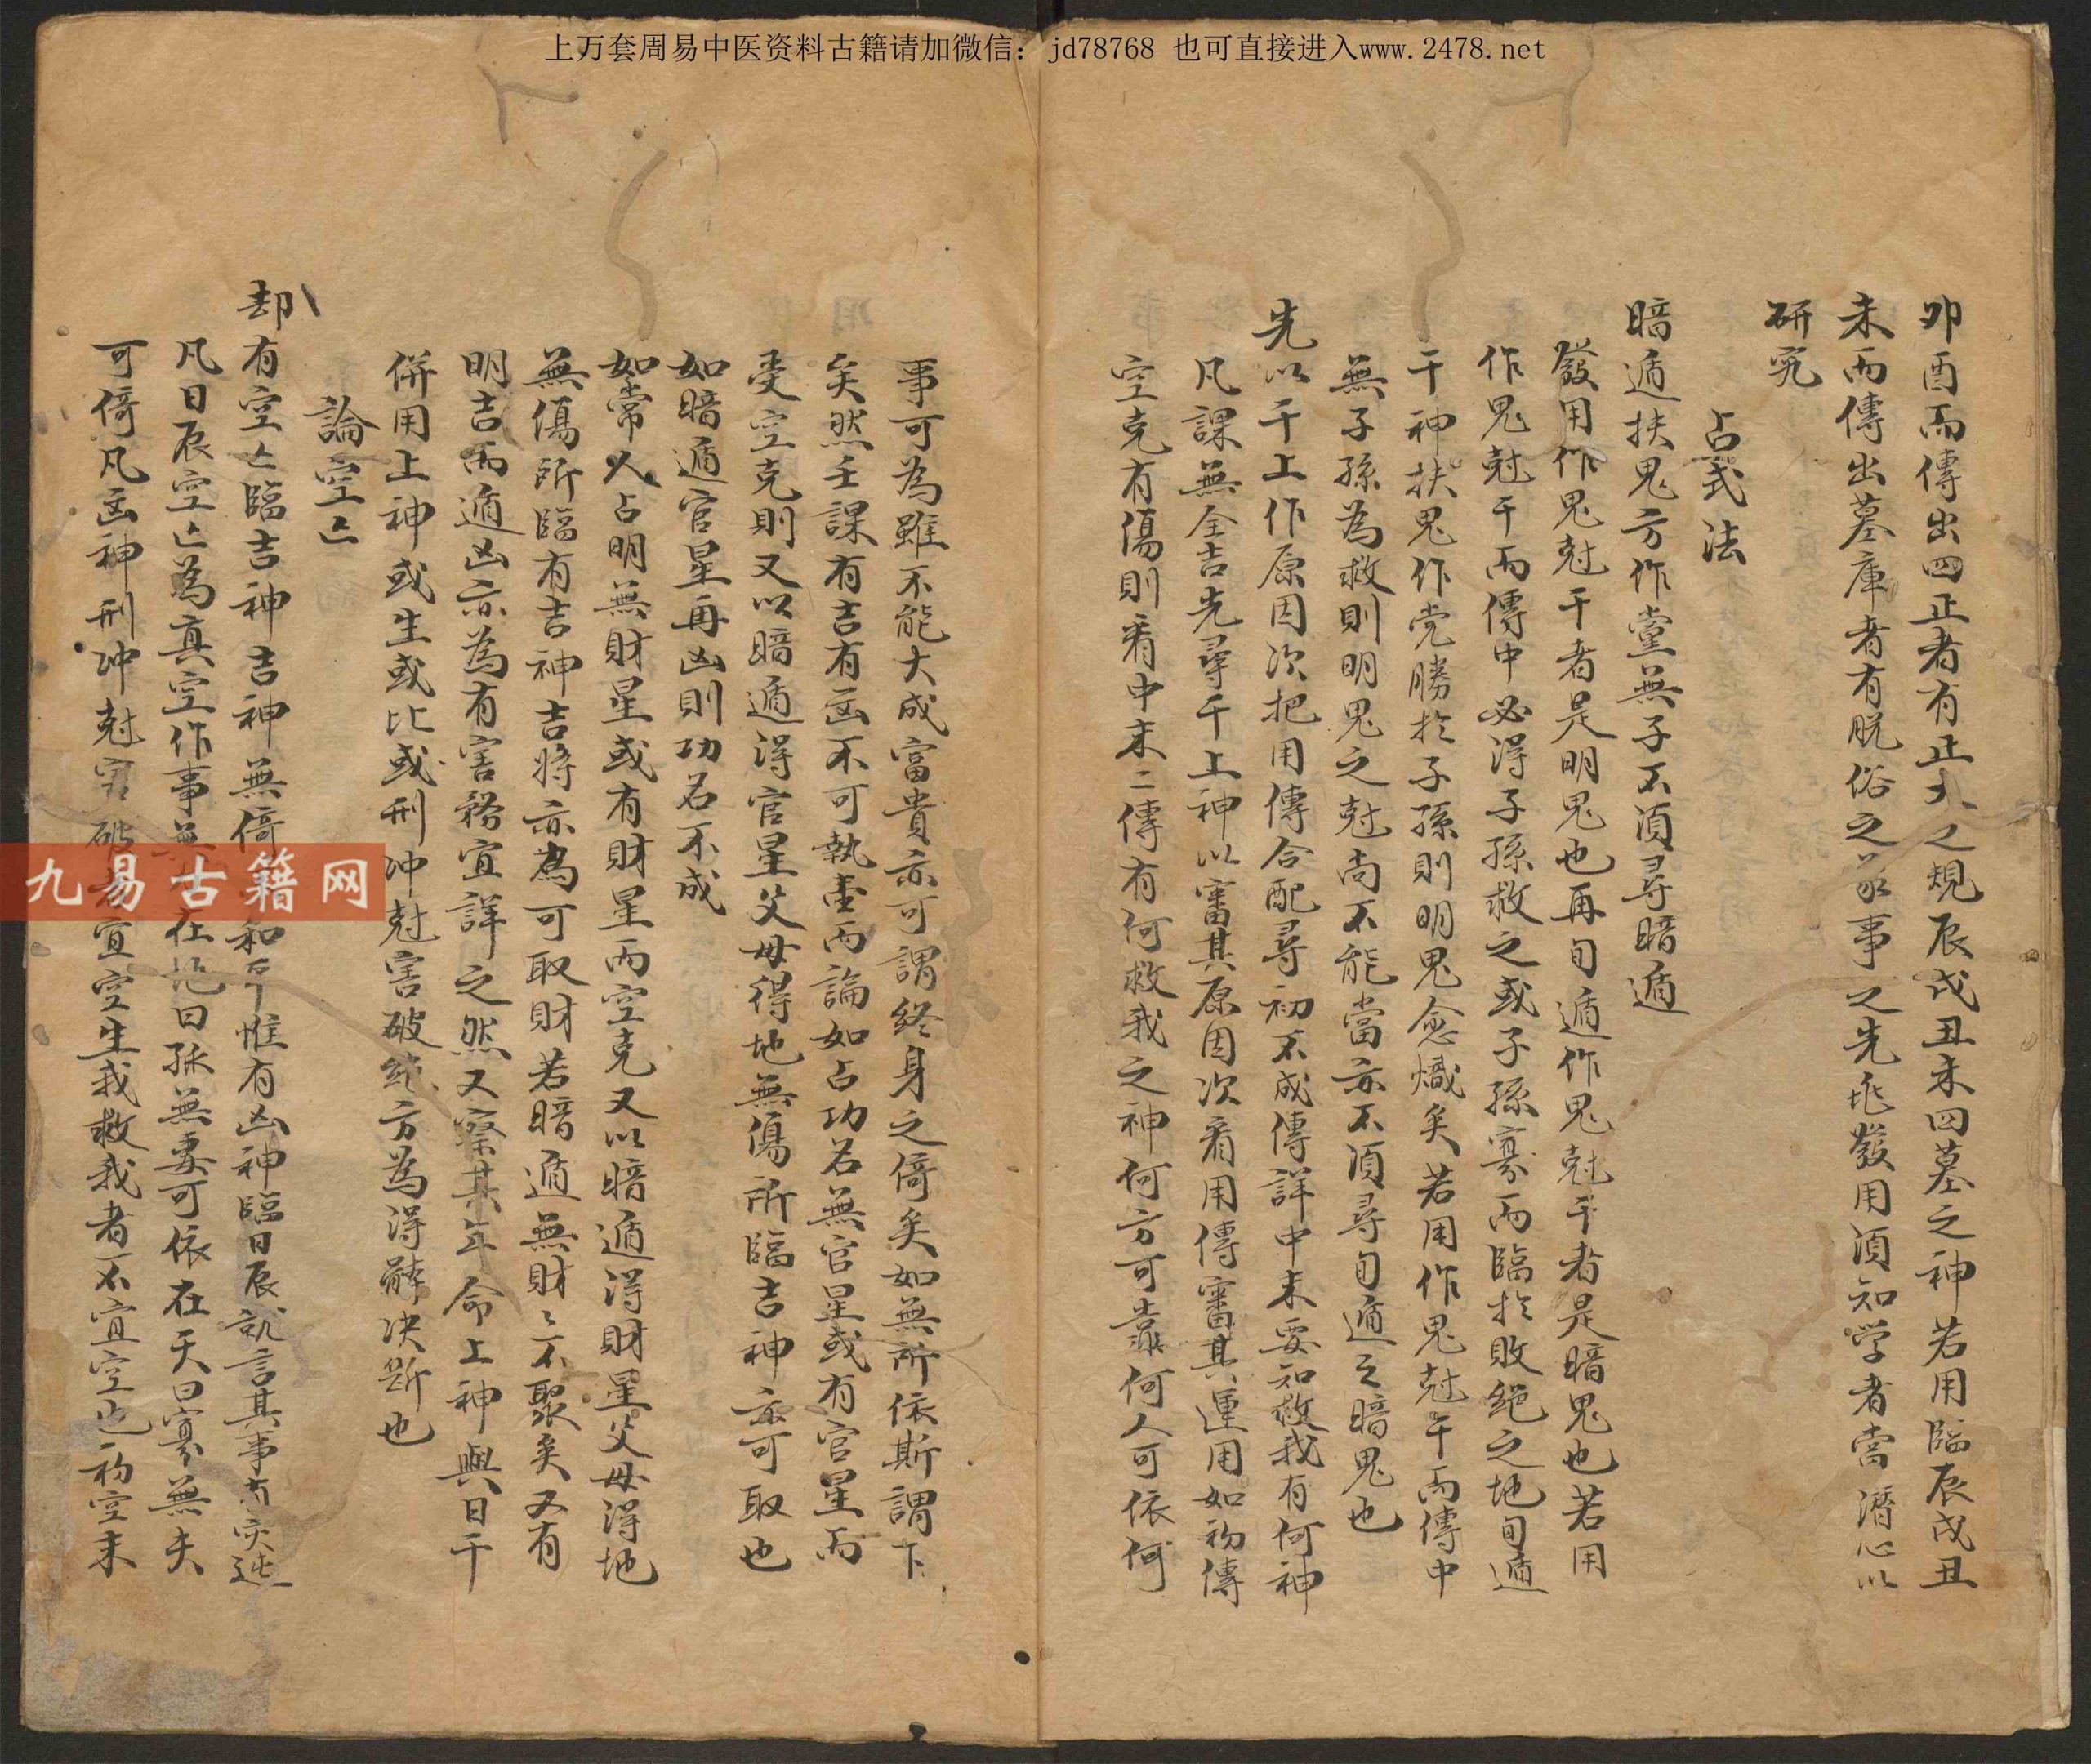 上万套周易中医资料古籍请加微信：jd78768 也可直接进入www.2478.net
卯酉而傳出四正者有正大之規辰戌丑未四墓之神若用臨辰戌丑
未而傳出墓庫者有脱俗之事之先發用須知学者當潛心以
研究
占式法
暗遁扶鬼方作黨無子不須尋暗遁
發用作鬼尅干者是明鬼也再旬遁作鬼尅干者是暗鬼也若用
作鬼尅干而傳中必得子孫救之或子孫寡而臨於敗絕之地旬遁
干神扶鬼作党勝於子孫則明鬼愈熾矣若用作鬼尅干而傳中
無子孫為救則明鬼之尅尚不能當亦不須尋旬遁之暗鬼也
先以干上作原因次把用傳合配尋初不成傳詳中末要知救我有何神
凡課無全吉先尋干上神以審其原因次看用傳審其運用如初傳
空克有傷則看中末二傳有何救我之神何方可靠何人可依何
事可為雖不能大成富貴亦可謂終身之倚矣如無所依斯謂下
矣然壬課有吉有凶不可執壹而論如占功名無官星或有官星而
受空克則又以暗遁得官星父母得地無傷所臨吉神亦可取也
如暗遁官星再凶則功名不成
如常人占明無財星或有財星而空克又以暗遁得財星父母得地
無傷所臨有吉神吉將亦為可取財若暗遁無財〻不聚矣又有
明吉而遁凶亦為有害務宜詳之然又察其年命上神與日干
併用上神或生或比或刑冲尅害破绝方為得觧决斷也
論空亡
却有空亡臨吉神吉神無倚和平惟有凶神臨日辰就言其事有迍
凡日辰空亡為真空作事無在地曰孤無妻可依在天曰寡無夫
可倚凡凶神刑冲尅害破者宜空生我救我者不宜空也初空末
九易古籍网